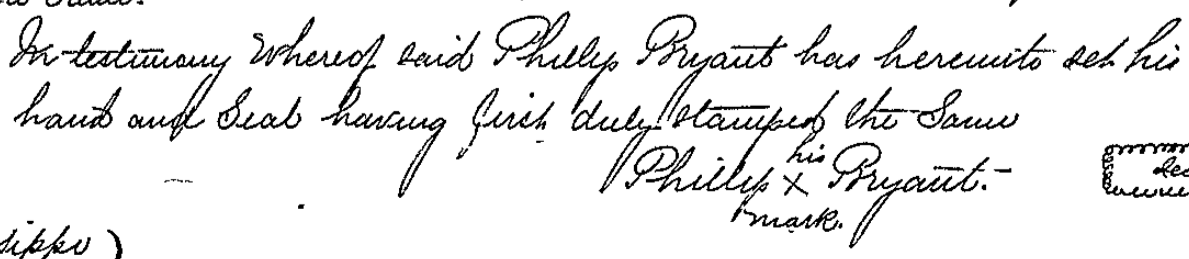 In testimony Whereof said Phillip Bryant has hereunto set his
hand and Seal having first duly stamped the Same
his
Phillip X Bryant.
mark.